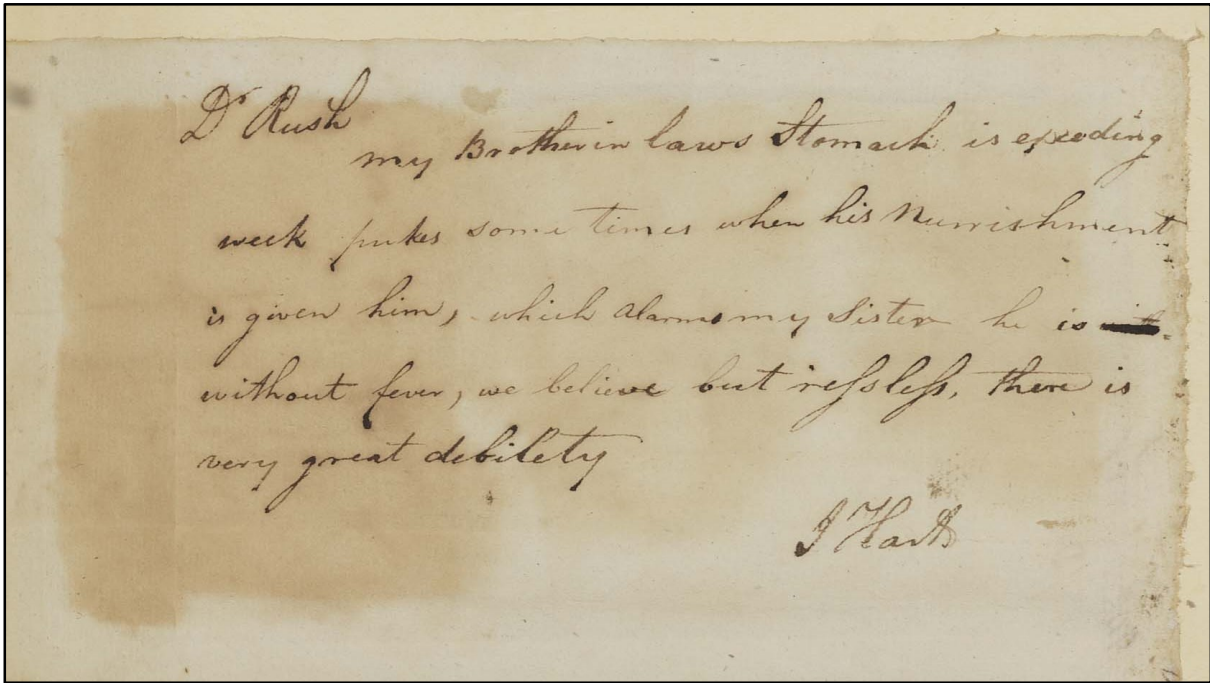 Dr Rush
my Brother in laws Stomach is exceding
week pukes some times when his Nurrishment
is given him, which alarms my Sister he is
without fever, we believe but ressless, there is
very great debilety
J Hart